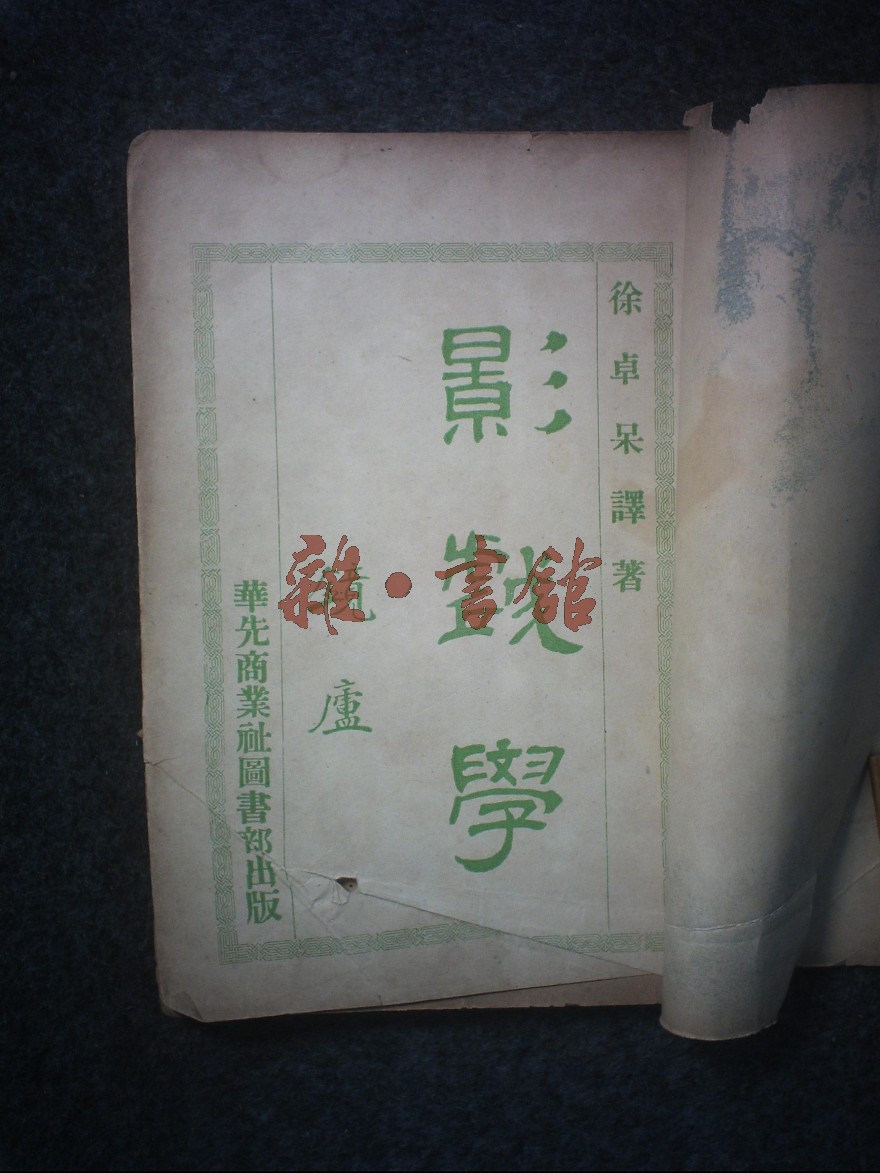 徐卓呆譯著
影戲學
廬
華先商業社圖書部出版
雜·書館